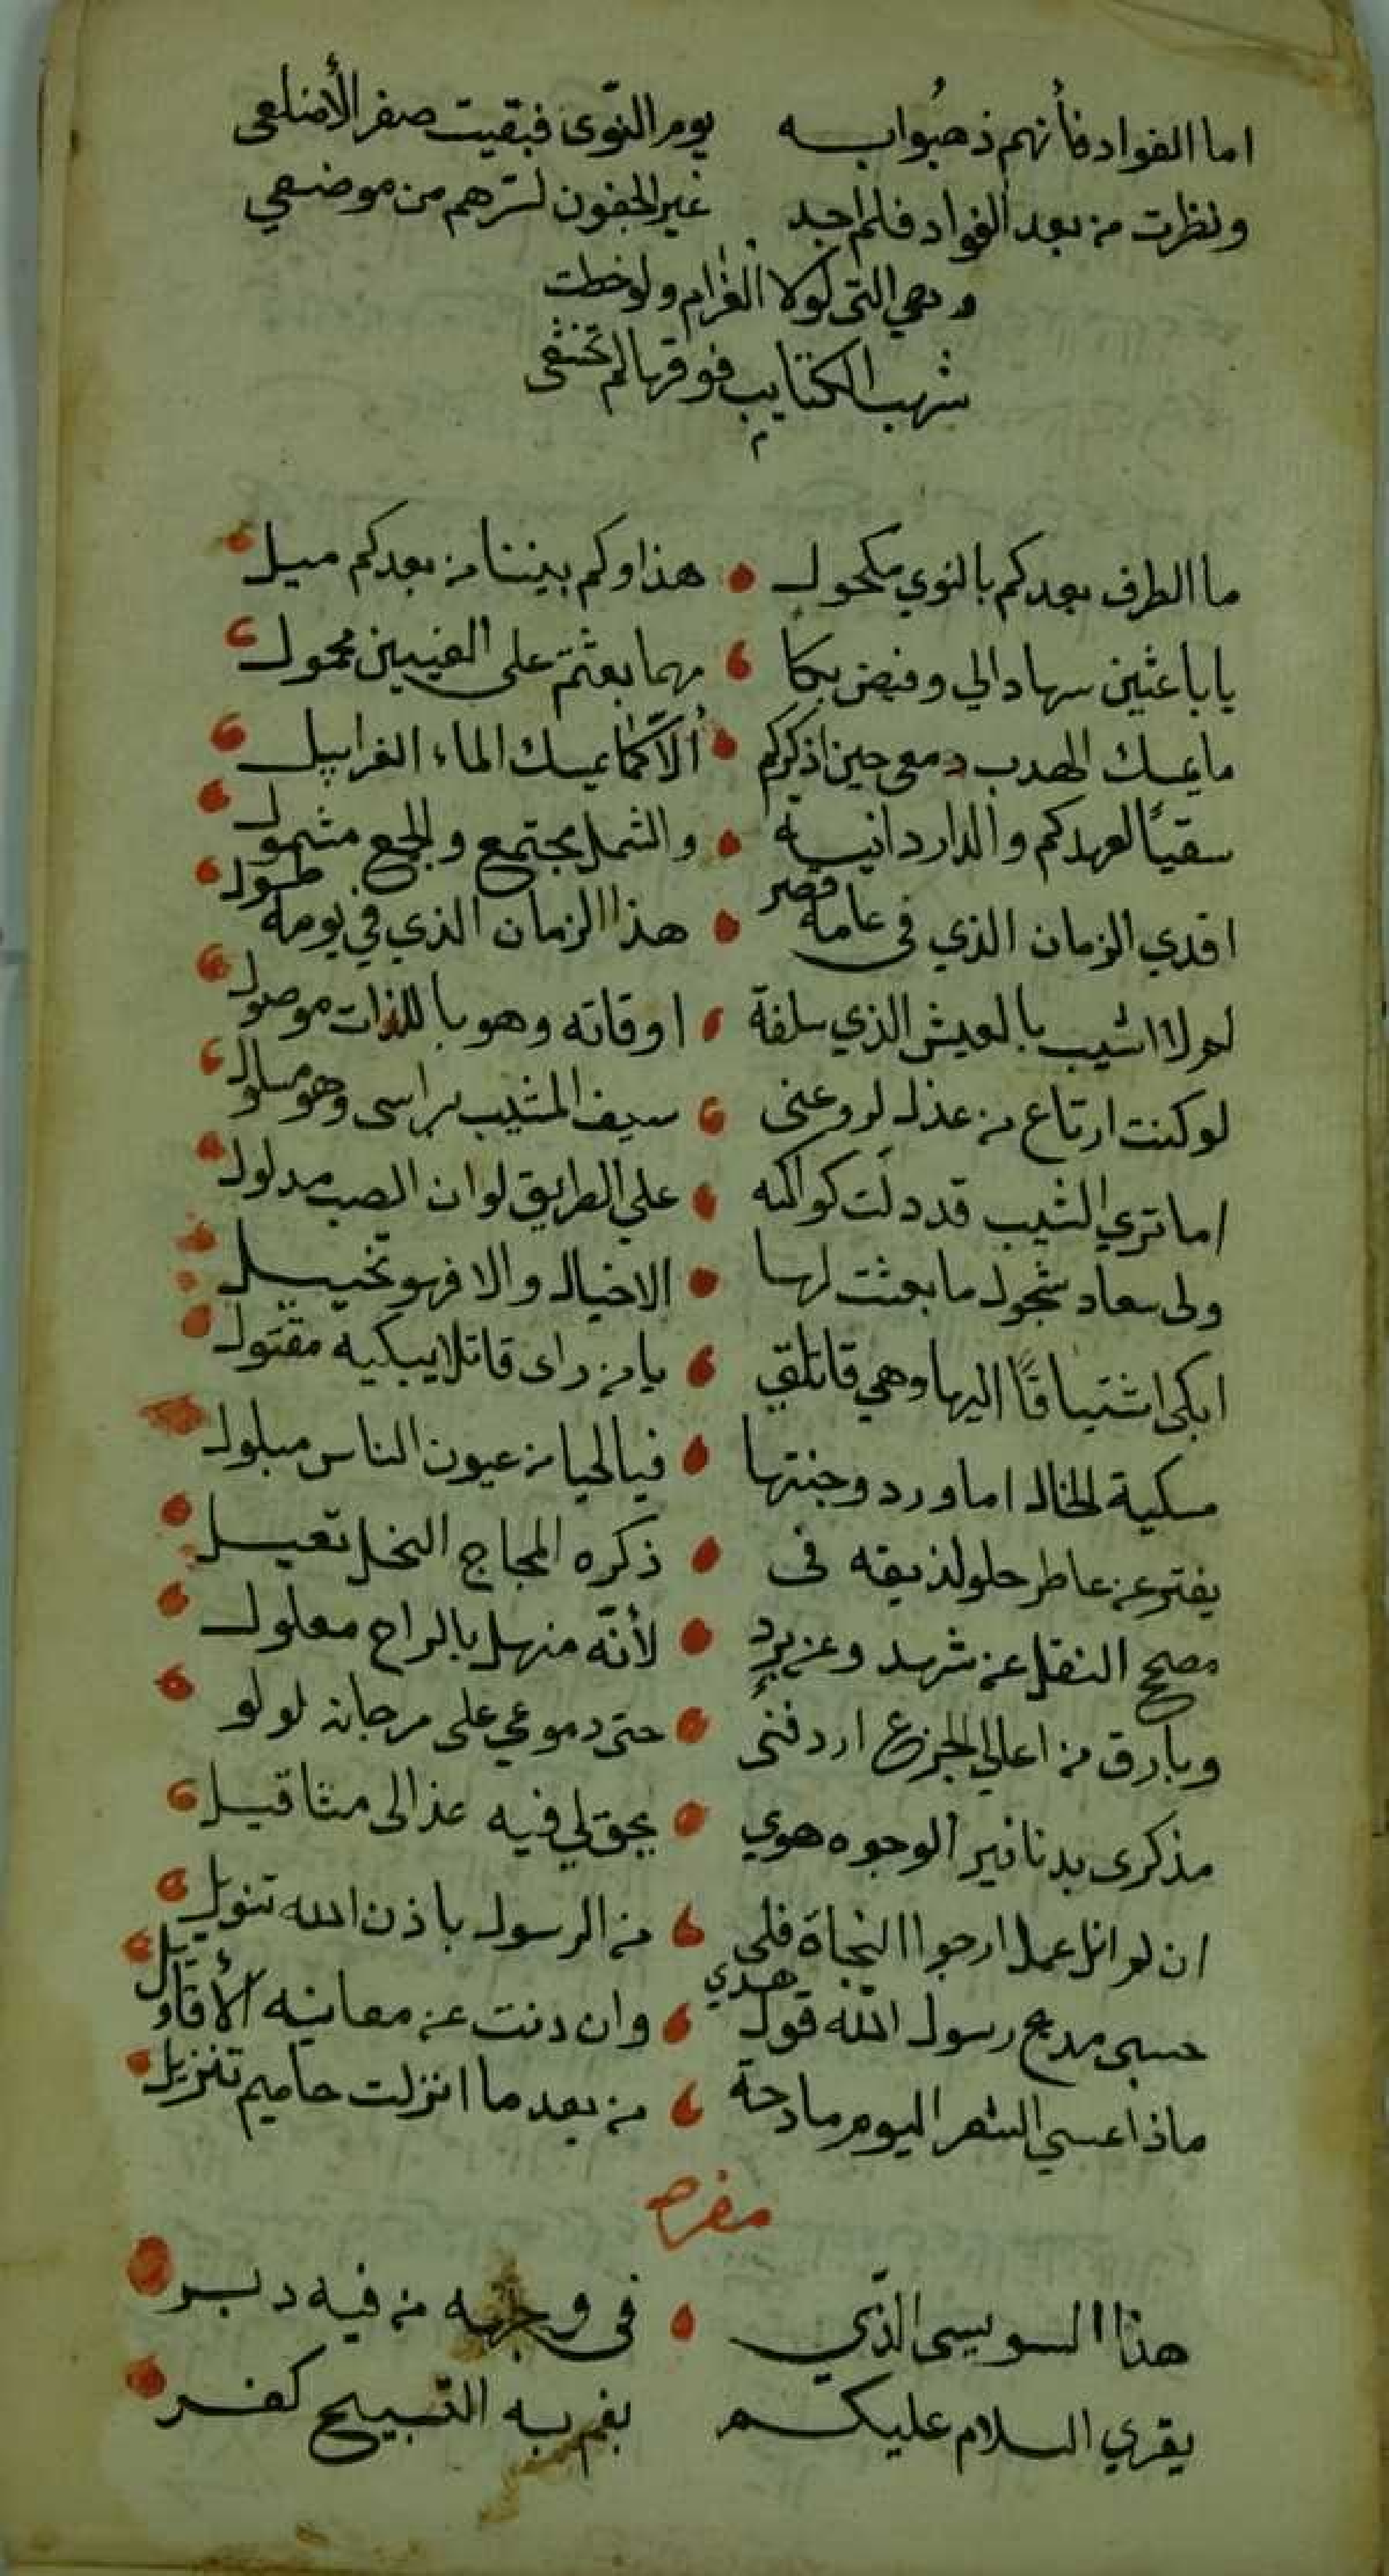 اما الفواد فأنهم ذهبُوا به يوم النّوى فبقيت صفر الأضلعى
ونظرت من بعد الفواد فلم اجد غير الجفون لسترهم من موضعي
وهي التى لولا الغرام ولو خطت
شهب الكتايب فوقها لم تختفى
م
ما الطرف بعدكم بالنوي مكحول هذا وكم بيننا من بعدكم ميل
يا باعثين سهادالي وفيض بكا مهما بعثتم على العينين محمول
ما يمسك الهدب دمعى حين اذكركم الّا كما يمسك الماء الغرابيل
سقيًا لعهدكم والدار دانية والشمل مجتمع والجمع مشمول
افدي الزمان الذي فى عامه قصر هذا الزمان الذي في يومه طول
لم لا اشيب بالعيش الذي سلفة اوقاته وهو باللذات موصول
لو كنت ارتاع من عذل لروعنى سيف المشيب براسى وهو مسلول
اما تري الشيب قد دلت كواكبه علي الطريق لو ان الصب مدلول
ولى سعاد شجول ما بعثت لها الا خيال والا فهو تخييل
ابكى اشتياقًا اليها وهي قاتلتي يا من راى قاتلا يبكيه مقتول
مسكية الخال اما ورد وجنتها فبالحيا من عيون الناس مبلول
يفتر عن عاطر حلو لذيقه فى ذكره المجاج النحل تعسيل
مصحح النقل عن شهد وعن برد لأنّه منهل بالراح معلول
وبارق من اعالي الجزع اردفنى حتى دموعي على مرجانه لولو
مذكرى بدنانير الوجوه هوي يحق لي فيه عذالى مثاقيل
ان لم انل عملا ارجوا النجاة فلى من الرسول باذن الله تنويل
حسبى مديح رسول الله قول هدي وان دنت عن معانيه الأقاويل
ماذا عسي الشعر اليوم مادحة من بعد ما انزلت حاميم تنزيل
هذا السويسى الذّي فى وجهه من فيه دبر
يقري السلام عليكم بفم به التسبيح كفر